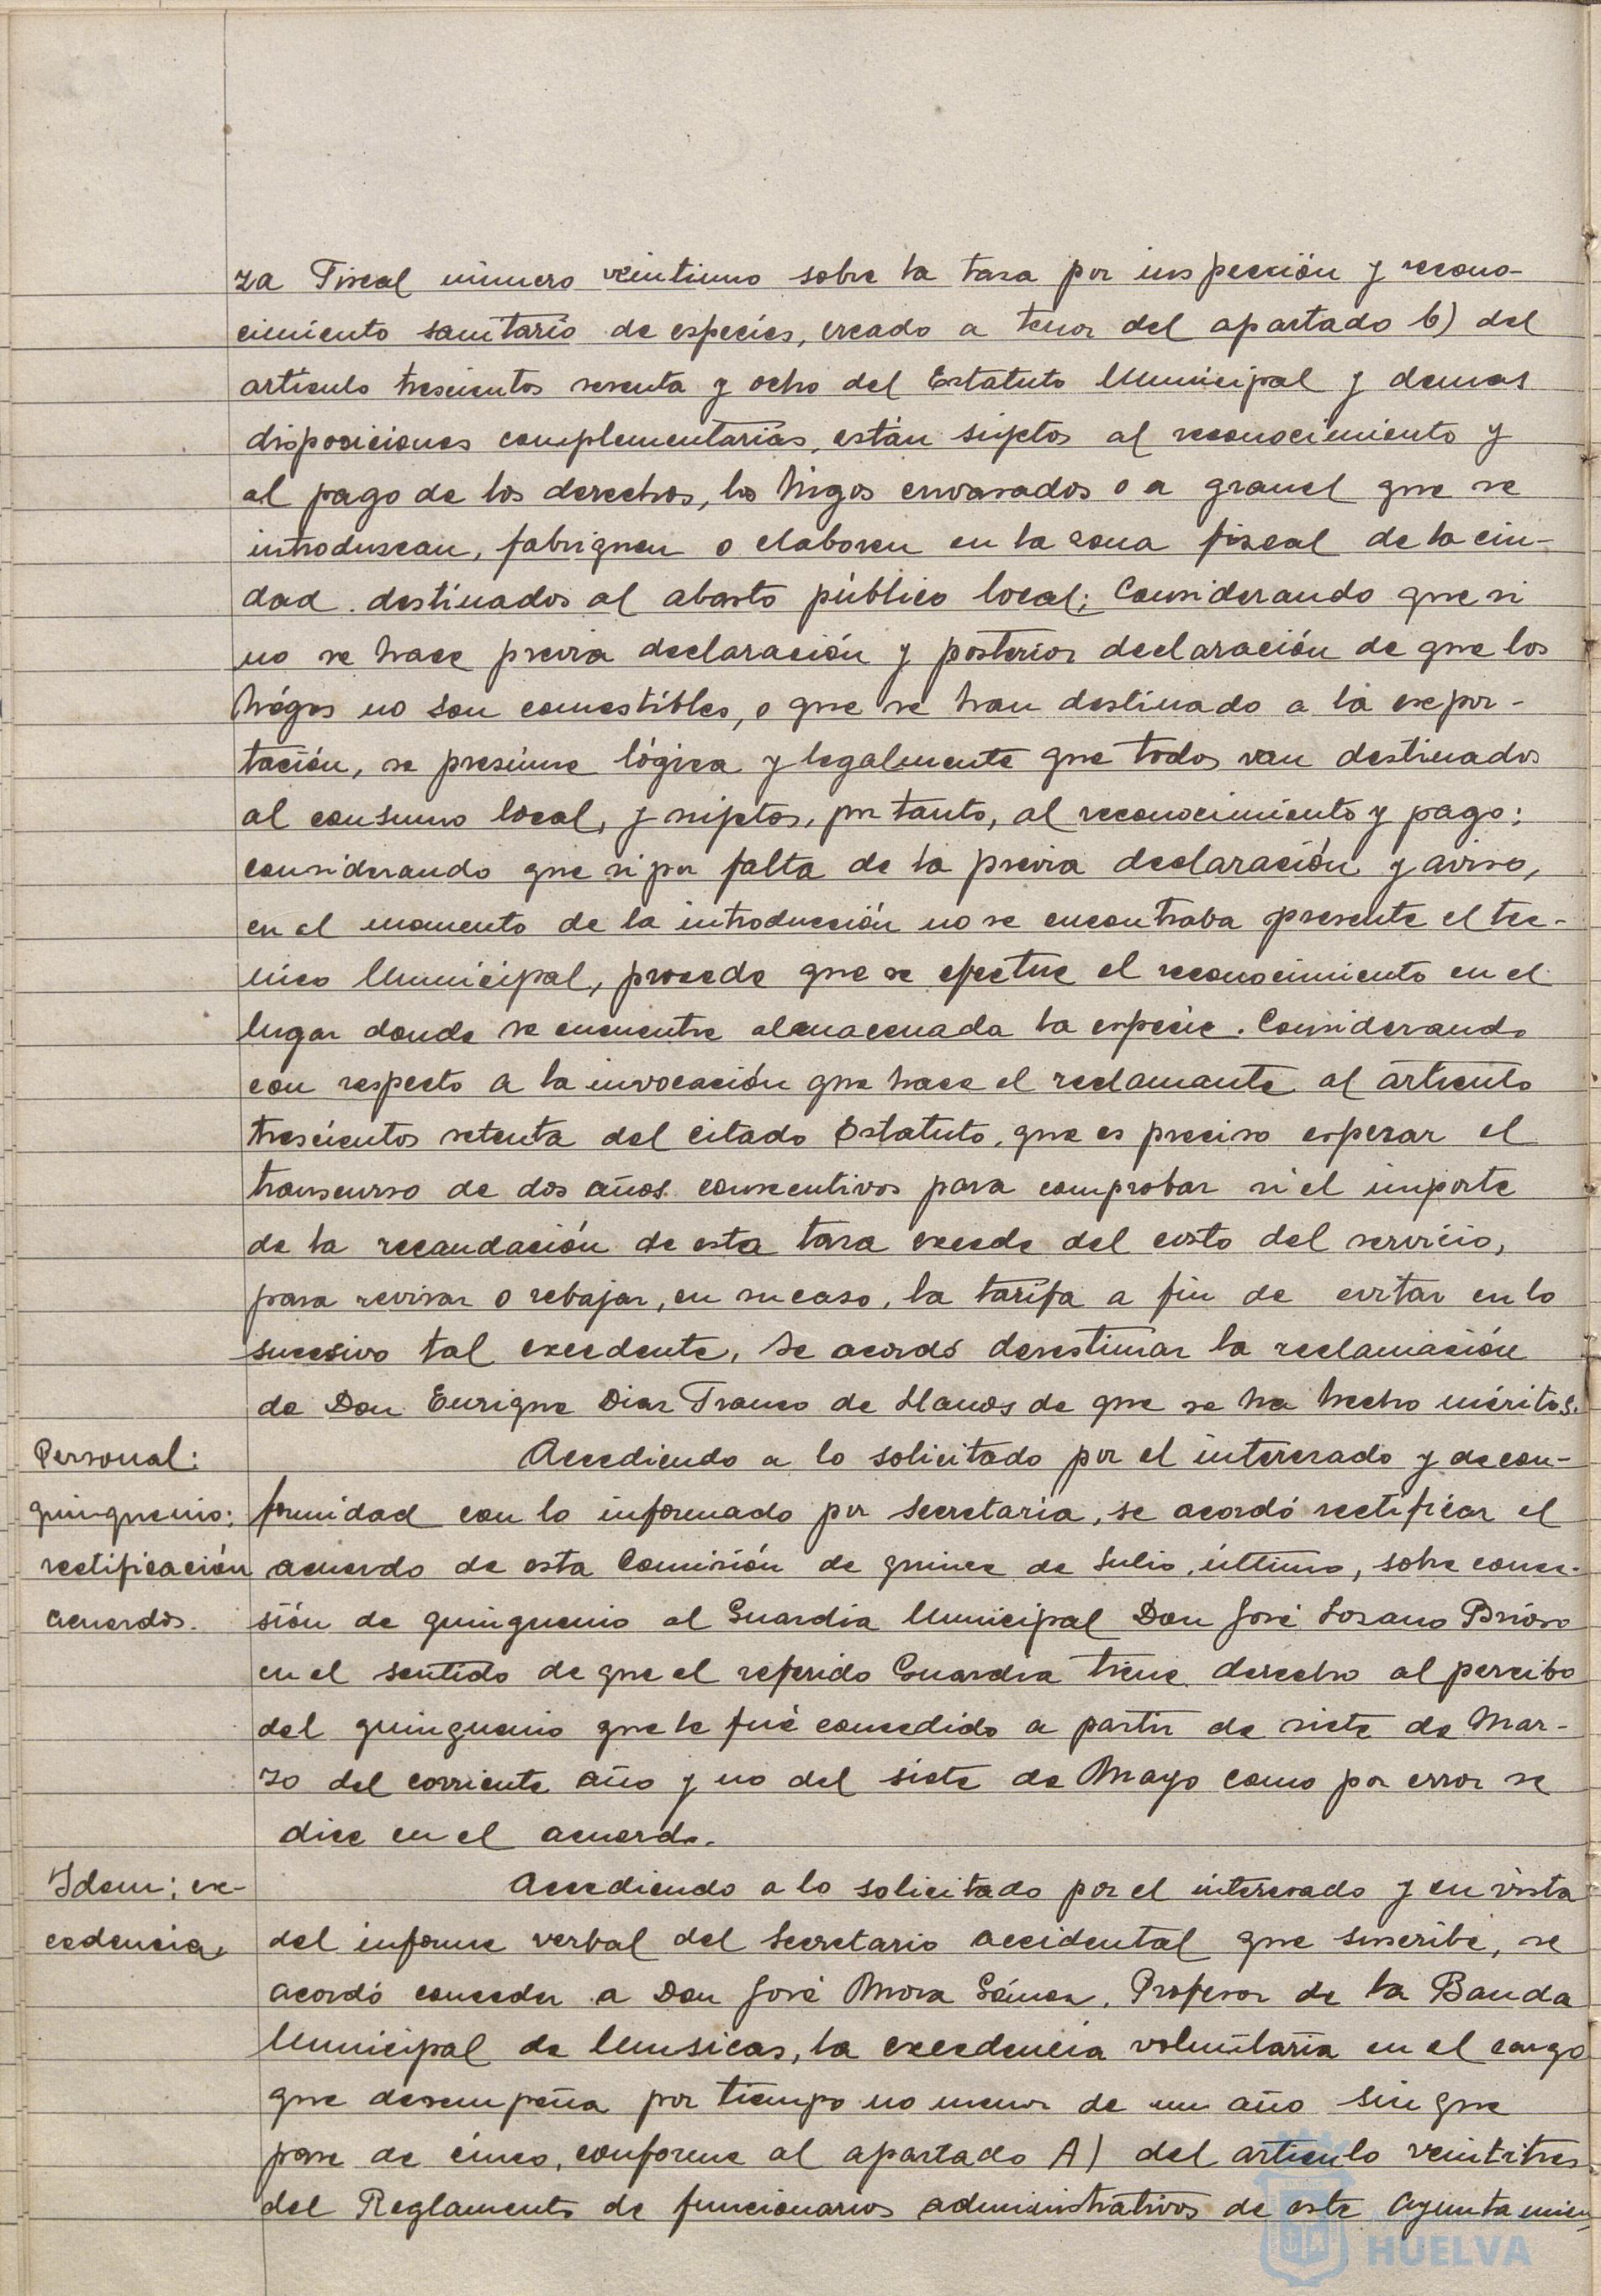 za Fiscal número veintiuno sobre la tasa por inspección y recono-
cimiento sanitario de especies, creado a tenor del apartado b) del
artículo trescientos sesenta y ocho del Estatuto Municipal y demas
disposiciones complementarias, están sujetos al reconocimiento y
al pago de los derechos, los higos envasados o a granel que se
introduzcan, fabriquen o elaboren en la zona fiscal de la ciu-
dad destinados al abasto público local; Considerando que si
no se hace previa declaración y posterior declaración de que los
higos no son comestibles, o que se han destinado a la expor-
tación, se presume lógica y legalmente que todos van destinados
al consumo local, y sujetos, por tanto, al reconocimiento y pago;
considerando que si por falta de la previa declaración y aviso,
en el momento de la introducción no se encontraba presente el tec-
nico Municipal, procede que se efectue el reconocimiento en el
lugar donde se encuentre almacenada la especie. Considerando
con respecto a la invocación que hace el reclamante al artículo
trescientos setenta del citado Estatuto, que es preciso esperar el
transcurso de dos años consecutivos para comprobar si el importe
de la recaudación de esta tasa excede del costo del servicio,
para revisar o rebajar, en su caso, la tarifa a fin de evitar en lo
sucesivo tal excedente, Se acordó desestimar la reclamación
de Don Enrique Diaz Franco de Llanos de que se ha hecho méritos.
Personal:
quinquenio;
rectificación
acuerdos.
Accediendo a lo solicitado por el interesado y de con-
formidad con lo informado por Secretaria, se acordó rectificar el
acuerdo de esta Comisión de quince de Julio último, sobre conce-
sión de quinquenio al Guardia Municipal Don José Lozano Brioso
en el sentido de que el referido Guardia tiene derecho al percibo
del quinquenio que le fué concedido a partir de siete de Mar-
zo del corriente año y no del siete de Mayo como por error se
dice en el acuerdo.
Idem; ex-
cedencia.
Accediendo a lo solicitado por el interesado y en vista
del informe verbal del Secretario accidental que suscribe, se
acordó conceder a Don José Mora Gómez, Profesor de la Banda
Municipal de Musicas, la excedencia voluntaria en el cargo
que desempeña por tiempo no menor de un año sin que
pase de cinco, conforme al apartado A) del artículo veintitres
del Reglamento de funcionarios administrativos de este Ayuntamien-
HUELVA